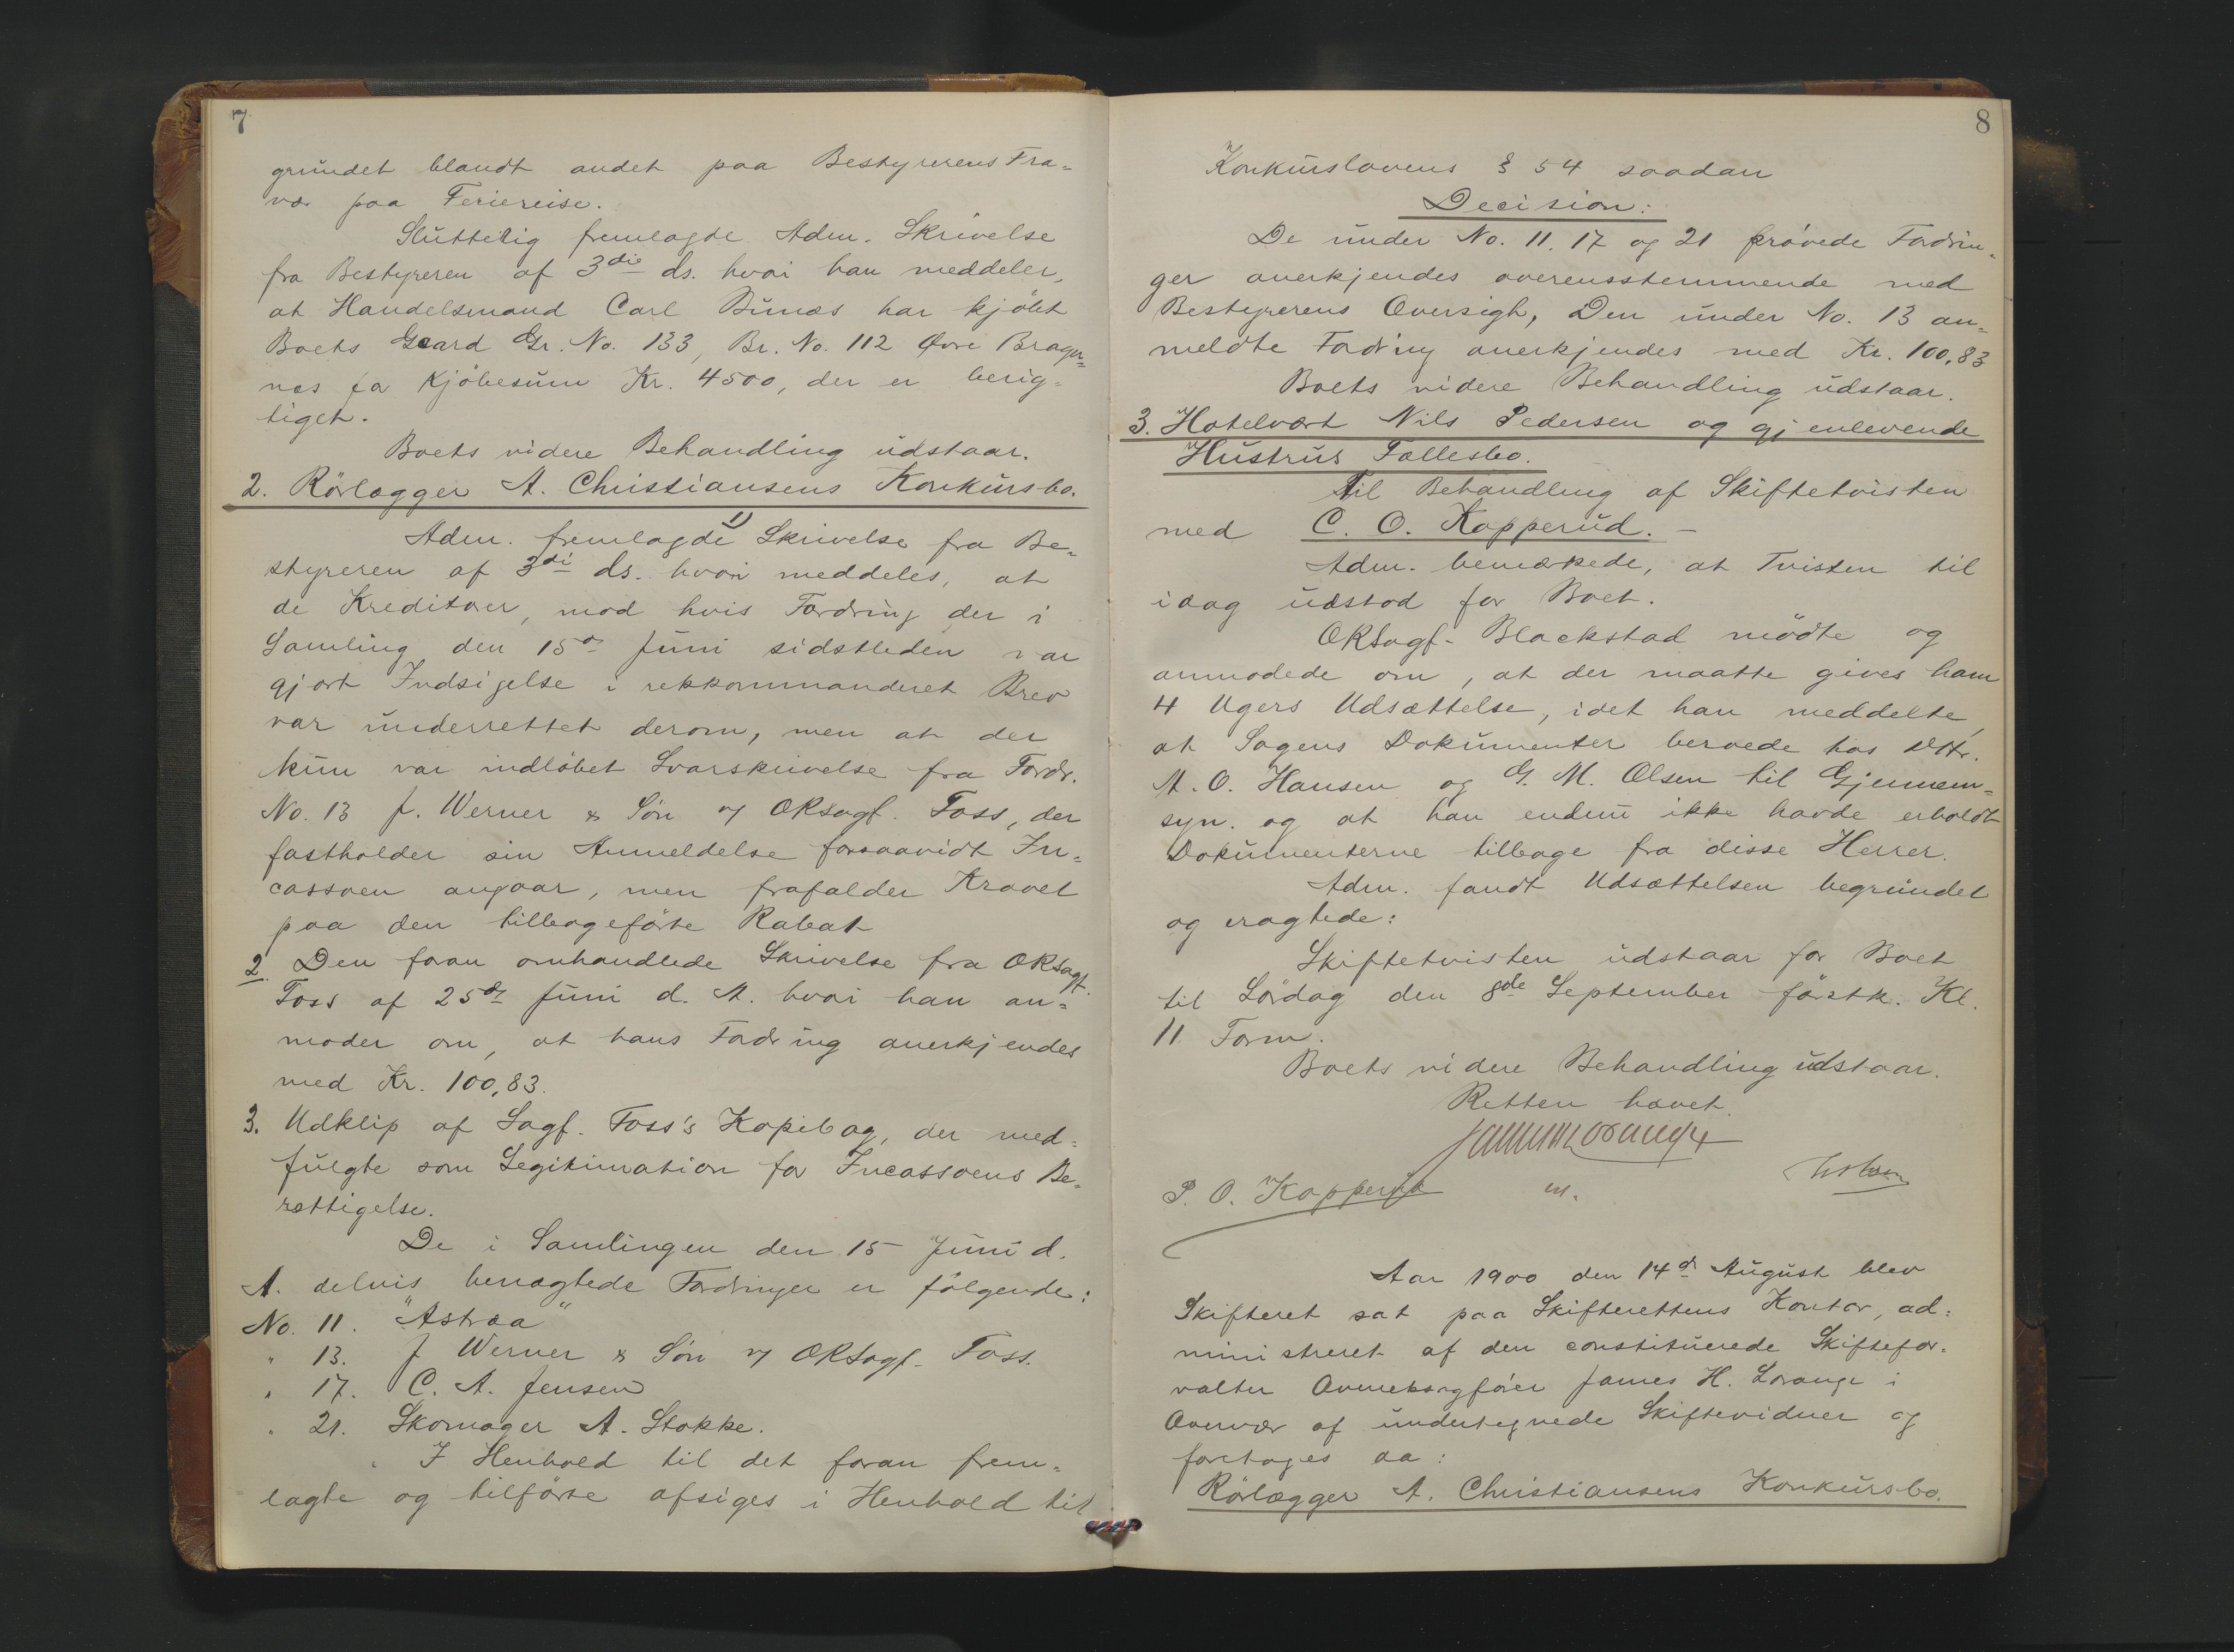 7
grundet blandt andet paa Bestyrerens Fra=
vær paa Feriereise.
Sluttelig fremlagde Adm. Skrivelse
fra Bestyreren af 3die ds. hvori han meddeler,
at Handelsmand Carl Bunæs har kjöbt
Boets Gaard Gr. No. 133, Br. No. 112 Øvre Brager=
næs for Kjöbesum Kr. 4500, der er berig=
tiget.
Boets videre Behandling udstaar.
2. Rörlægger A. Christiansens Konkursbo.
Adm. fremlagde 1) Skrivelse fra Be=
styreren af 3di ds. hvori meddeles, at
de Kreditorer, mod hvis Fordring der i
Samling den 15de Juni sidstleden var
gjort Indsigelse i rekkommanderet Brev
var underrettet derom, men at der
kun var indlöbet Svarskrivelse fra Fordr.
No. 13 J. Werner & Sön v/ ORsagf. Foss, der
fastholder sin Anmeldelse forsaavidt In=
cassoen angaar, men frafalder Kravet
paa den tilbageförte Rabat
2. Den foran omhandlede Skrivelse fra ORsagf.
Foss af 25de Juni d. A. hvori han an=
moder om, at hans Fordring anerkjendes
med Kr. 100,83.
3. Udklip af Sagf. Foss's Kopibog, der med=
fulgte som Legitimation for Incassoens Be=
rettigelse.
De i Samlingen den 15 Juni d.
A. delvis benægtede Fordringer er fölgende:
No. 11. "Astræa"
" 13. J Werner & Sön v/ ORsagf. Foss.
" 17. C. A. Jensen
" 21. Skomager A. Stokke.
I Henhold til det foran frem=
lagte og tilförte afsiges i Henhold til
8
Konkurslovens § 54 saadan
Decision:
De under No. 11. 17 og 21 prövede Fordrin=
ger anerkjendes overensstemmende med
Bestyrerens Oversigt, Den under No. 13 an=
meldte Fordring anerkjendes med Kr. 100,83
Boets videre Behandling udstaar.
3. Hotelvært Nils Pedersen og gjenlevende
Hustrus Fællesbo.
Til Behandling af Skiftetvisten
med C. O. Kopperud. –
Adm. bemærkede, at Tvisten til
idag udstod for Boet.
ORSagf. Blackstad mödte og
anmodede om, at der maatte gives ham
4 Ugers Udsættelse, idet han meddelte,
at Sagens Dokumenter beroede hos D'Hr.
A. O. Hansen og G. M. Olsen til Gjennem=
syn. og at han endnu ikke havde erholdt
Dokumenterne tilbage fra disse Herrer.
Adm. fandt Udsættelsen begrundet
og eragtede:
Skiftetvisten udstaar for Boet
til Lördag den 8de September förstk. Kl.
11 Form.
Boets videre Behandling udstaar.
Retten hævet.
P. O. Kopperud
Aar 1900 den 14de August blev
Skifteret sat paa Skifterettens Kontor, ad=
ministreret af den constituerede Skiftefor=
valter Overretssagförer James H. Lorange i
Overvær af undertegnede Skiftevidner og
foretoges da:
Rörlægger A. Christiansens Konkursbo.